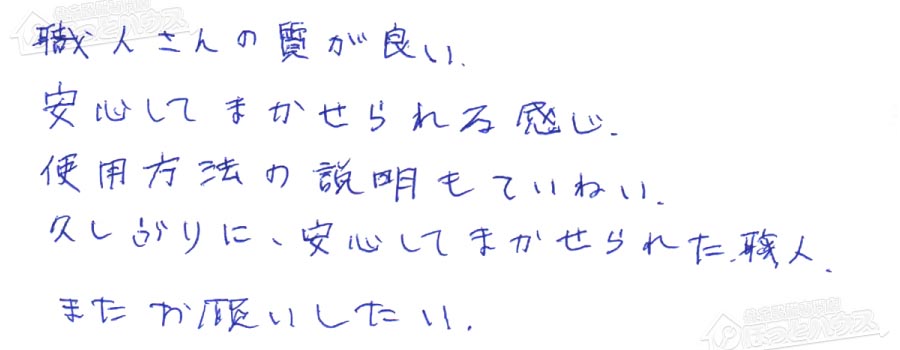 職人さんの質が良い.
安心してまかせられる感じ.
使用方法の説明もていねい.
久しぶりに、安心してまかせられた.職人.
またお願いしたい.
ほっとハウス